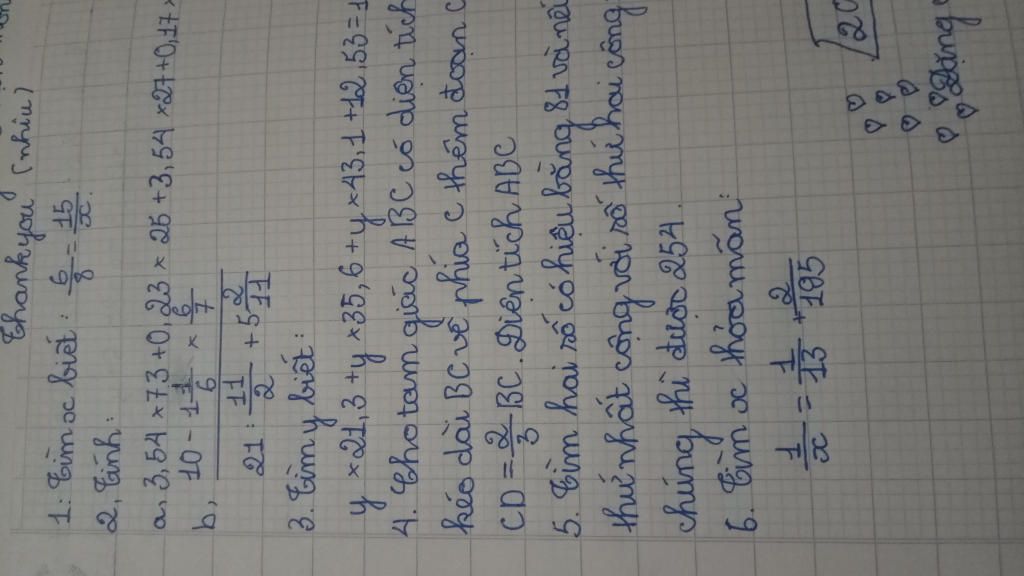 Thank you (nhìu)
1: Tìm x biết: 6/8 = 15/x.
2, Tính:
a. 3,54 × 73 + 0,23 × 25 + 3,54 × 27 + 0,17 ×
b, (10 - 1 1/6 × 6/7) / (21 : 11/2 + 5 2/11)
3. Tìm y biết:
y × 21,3 + y × 35,6 + y × 43,1 + 12,53 = 1
4. Cho tam giác ABC có diện tích
kéo dài BC về phía C thêm đoạn C
CD = 2/3 BC. Diện tích ABC
5. Tìm hai số có hiệu bằng 81 và nế
thứ nhất cộng với số thứ hai cộng
chúng thì được 254.
6. Tìm x thỏa mãn:
1/x = 1/13 + 2/195
20
Đặng